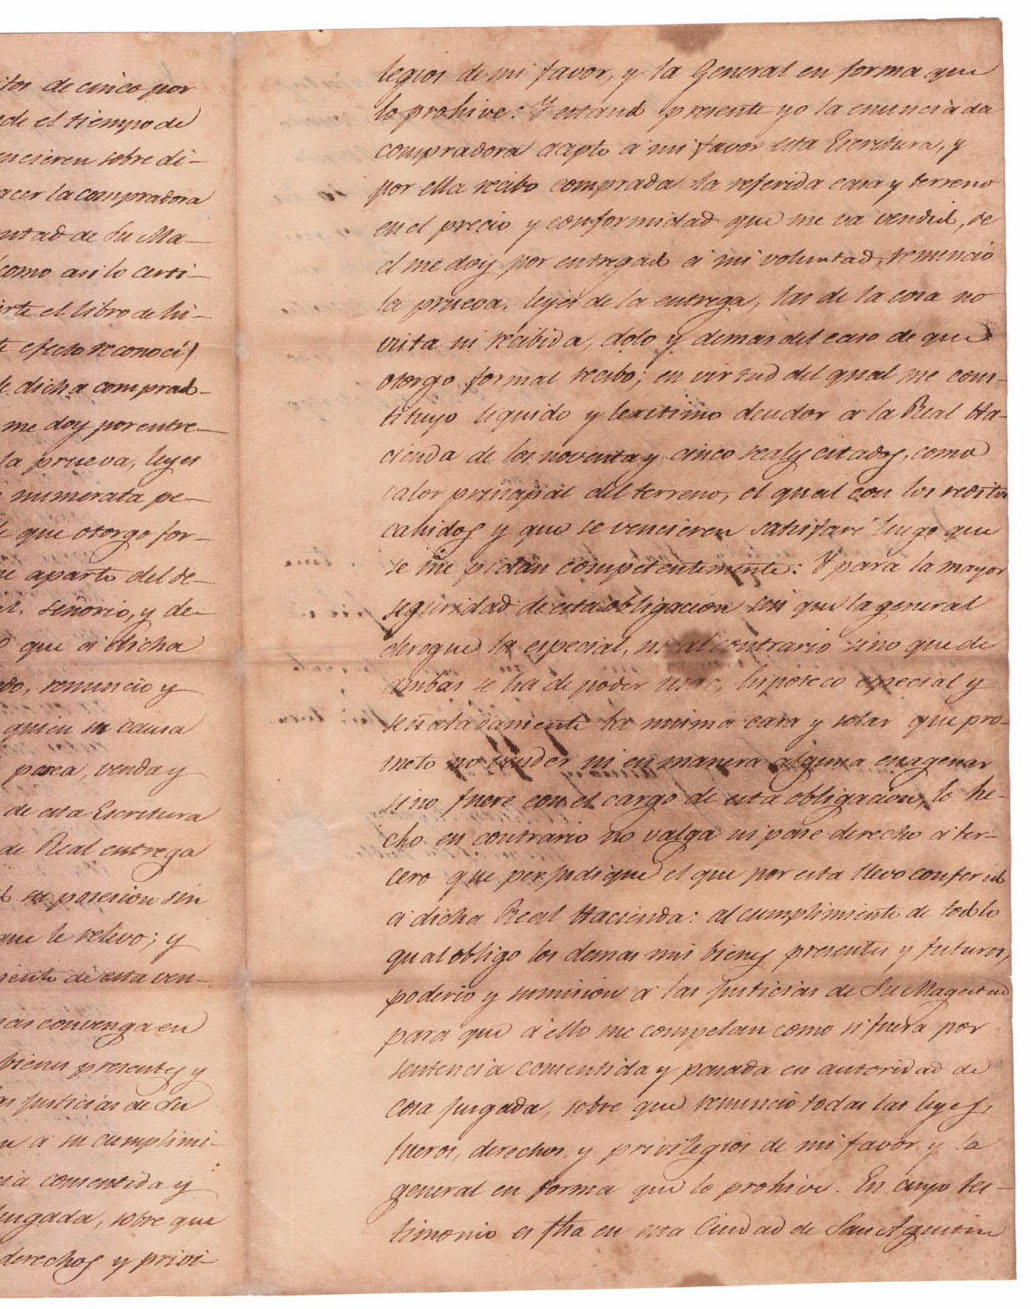 itos de cinco por
sde el tiempo de
encieren sobre di-
acer la compradora
untad de Su Ma-
como asi lo certi-
arte el libro de hi-
te efecto reconocí)
de dicha comprad-
me doy por entre-
la prueva, leyes
numerata pe-
de que otorgo for-
ue aparto del de-
señorio, y de-
que á dicha
edo, renuncio y
quien su causa
posea, venda y
de esta Escritura
de Real entrega
su posesion sin
que le relevo; y
miento de esta ven-
mas convenga en
bienes presentes y
as justicias de Su
n á su cumplimi-
cia consentida y
juzgada, sobre que
derechos y privi-
legios de mi favor, y la General en forma que
lo prohive: Y estand presente yo la enunciada
compradora acepto á mi favor esta Escritura, y
por ella recibo comprada la referida casa y terreno
en el precio y conformidad que me va vendid, de
el me doy por entregad á mi voluntad, renuncio
la prueva, leyes de la entrega, las de la cosa no
vista ni recibida, dolo y demas del caso de que
otorgo formal recibo; en virtud del qual me cons-
tituyo liquido y lexitimo deudor á la Real Ha-
cienda de los noventa y cinco reales citados, como
valor principal del terreno, el qual con los reditos
cahidos y que se vencieren satisfaré luego que
se me pidan competentemente: Y para la mayor
seguridad de esta obligacion sin que la general
derogue la especial, ni al contrario sino que de
ambas se ha de poder usar, hipoteco especial y
señaladamente la misma casa y solar que pro-
meto no vender ni en manera alguna enagenar
sino fuere con el cargo de esta obligacion, lo he-
cho en contrario no valga ni pase derecho á ter-
cero que perjudique el que por esta llevo conferid
á dicha Real Hacienda: al cumplimiento de todo lo
qual obligo los demas mis bienes presentes y futuros,
poderio y sumision á las Justicias de Su Magestad
para que á ello me compelan como si fuera por
sentencia consentida y pasada en autoridad de
cosa juzgada, sobre que renuncio todas las leyes,
fueros, derechos y privilegios de mi favor y la
general en forma que lo prohive. En cuyo tes-
timonio es fha en esta Ciudad de San Agustin